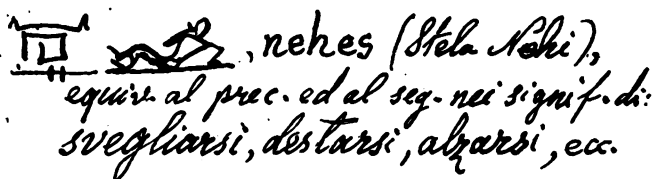 , nehes (Stela Nehi),
equiv. al prec. ed al seg. nei signif. di:
svegliarsi, destarsi, alzarsi, ecc.